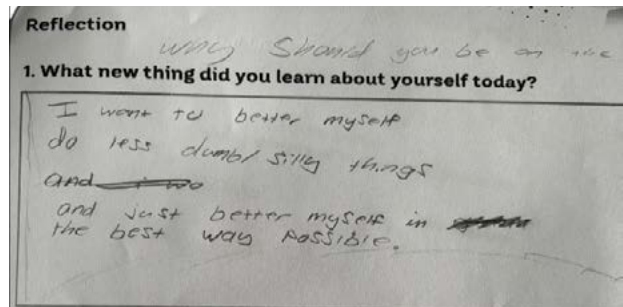 Reflection
why Should you be on the
1. What new thing did you learn about yourself today?
I want to better myself
do less dumb/ silly things
and
and just better myself in
the best way possible.